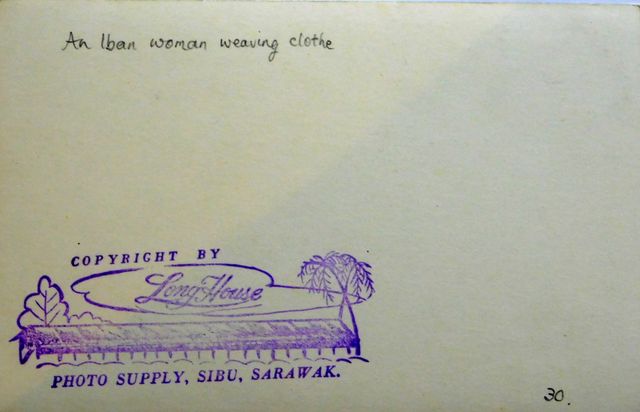 An Iban woman weaving clothe
COPYRIGHT BY
Long House
PHOTO SUPPLY, SIBU, SARAWAK.
30.